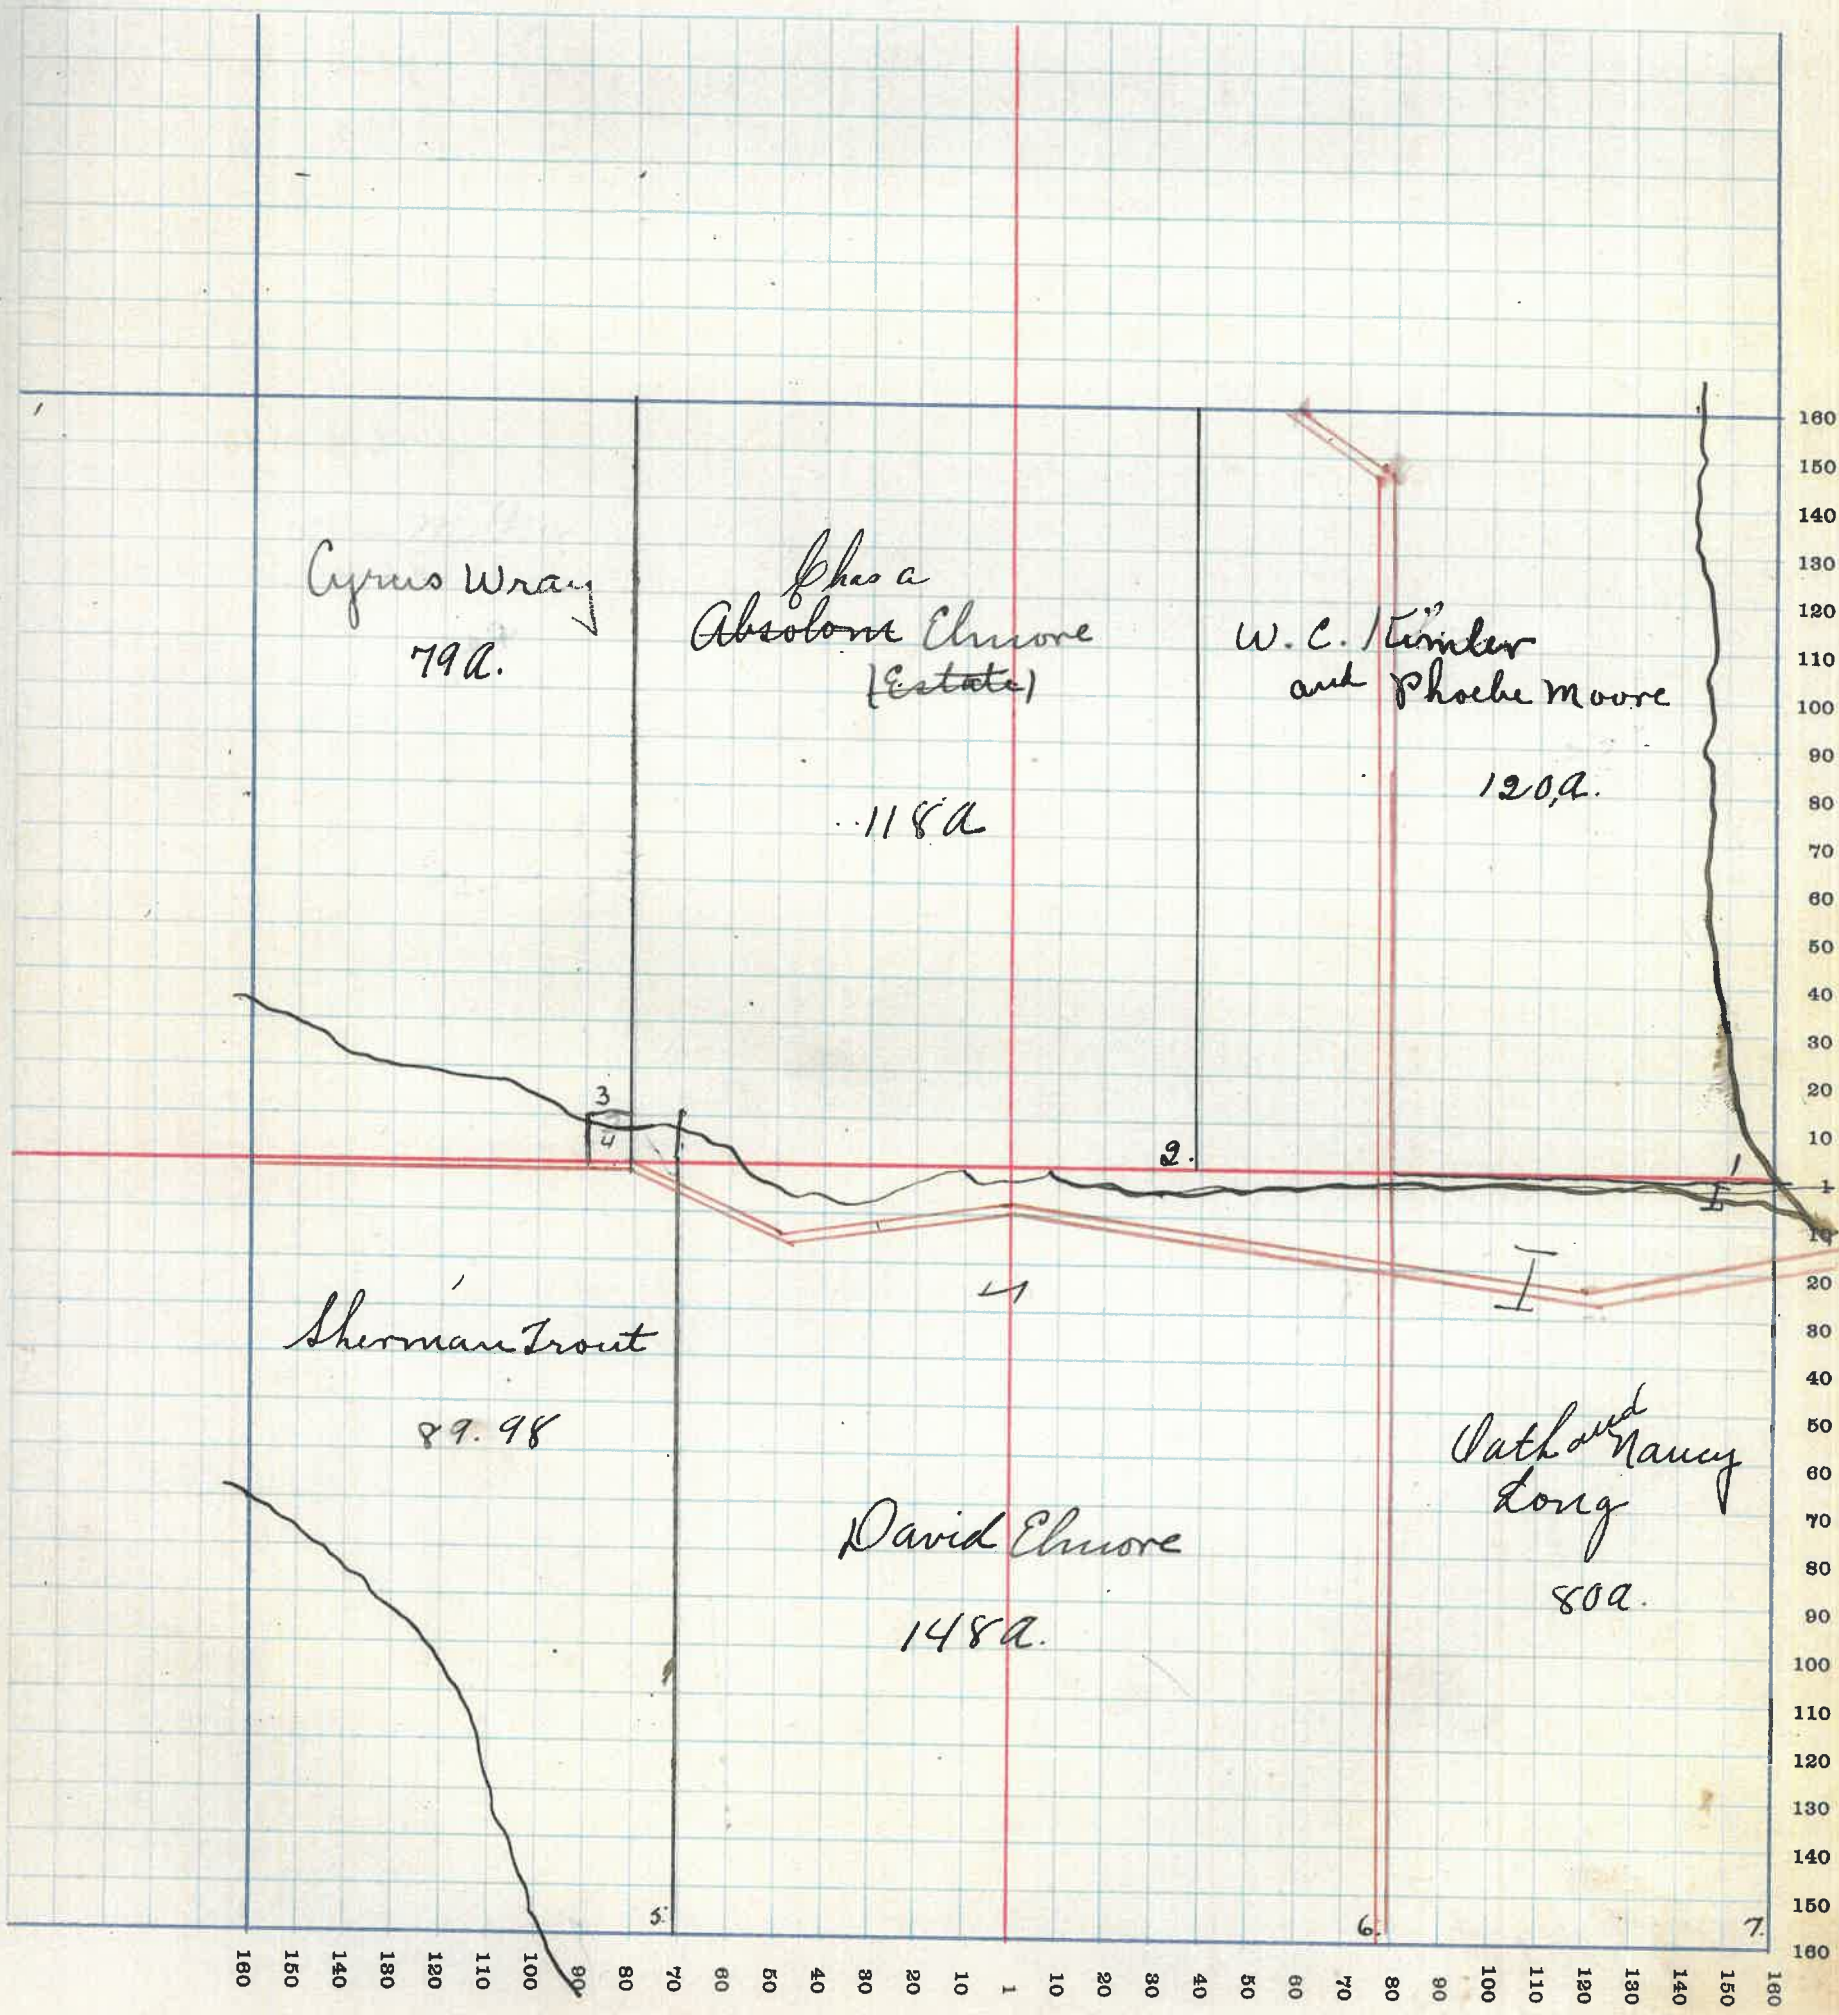 Cyrus Wray
79 a.
Chas a
Absolom Elmore
(Estate)
118 a
W. C. Kimler
and Phoebe Moore
120, a.
3
4
1
2.
1
Sherman Trout
89.98
David Elmore
148 a.
and Nancy
Long
80 a.
5.
6.
7.
160
150
140
130
120
110
100
90
80
70
60
50
40
30
20
10
1
10
20
30
40
50
60
70
80
90
100
110
120
130
140
150
160
160 150 140 130 120 110 100 90 80 70 60 50 40 30 20 10 1 10 20 30 40 50 60 70 80 90 100 110 120 130 140 150 160